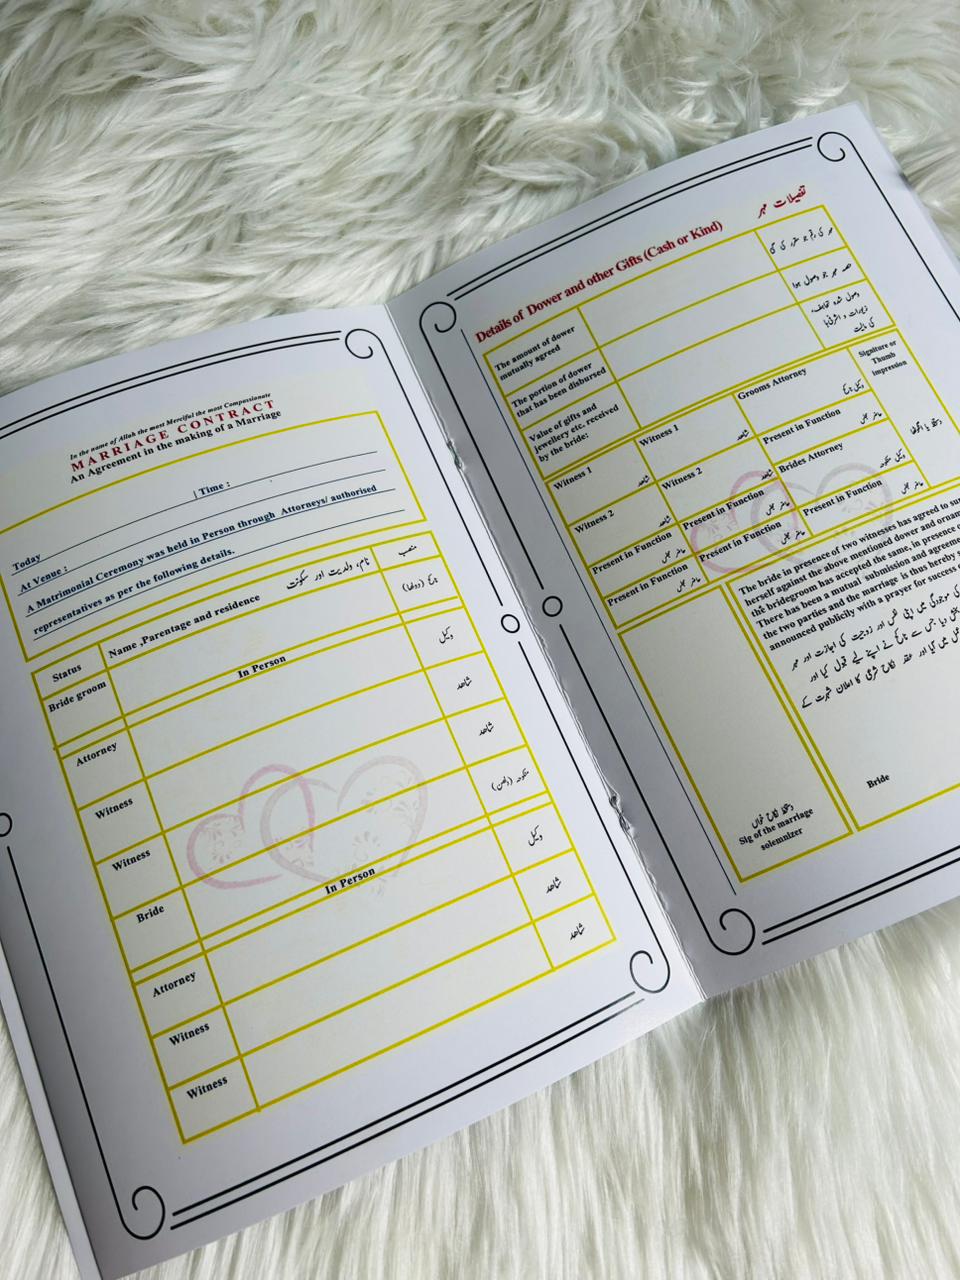 In the name of Allah the most Merciful the most Compassionate
MARRIAGE CONTRACT
An Agreement in the making of a Marriage
Today | Time :
At Venue :
A Matrimonial Ceremony was held in Person through Attorneys/ authorised
representatives as per the following details.
Status Name ,Parentage and residence نام، ولدیت اور سکونت منصب
Bride groom ناکح (دولھا)
In Person
Attorney وکیل
Witness شاھد
Witness شاھد
Bride منکوحہ (دلھن)
In Person
Attorney وکیل
Witness شاھد
Witness شاھد
Details of Dower and other Gifts (Cash or Kind) تفصیلات مہر
The amount of dower
mutually agreed
مہر کی رقم جو مقرر کی گئی
The portion of dower
that has been disbursed
حصہ مہر جو وصول ہوا
Value of gifts and
jewellery etc. received
by the bride:
وصول شدہ تحائف،
زیورات و اشرفیاں
کی مالیت
Witness 1 شاھد
Witness 1 شاھد
Grooms Attorney وکیل ناکح
Signiture or
Thumb
impression
دستخط یا انگوٹھا
Witness 2 شاھد
Witness 2 شاھد
Present in Function حاضر مجلس
Brides Attorney وکیل منکوحہ
Present in Function حاضر مجلس
Present in Function حاضر مجلس
Present in Function حاضر مجلس
Present in Function حاضر مجلس
Present in Function حاضر مجلس
The bride in presence of two witnesses has agreed to
herself against the above mentioned dower and
the bridegroom has accepted the same, in presence
There has been a mutual submission and
the two parties and the marriage is thus hereby
announced publicity with a prayer for success
کی موجودگی میں اپنی نفس اور زوجیت کی اجازت اور مہر
دیا جس سے ناکح نے اپنے لیے قبول کیا اور
میں کیا اور عقد نکاح شرعی کا اعلان شہرت کے
دستخط نکاح خواں
Sig of the marriage
solemnizer
Bride